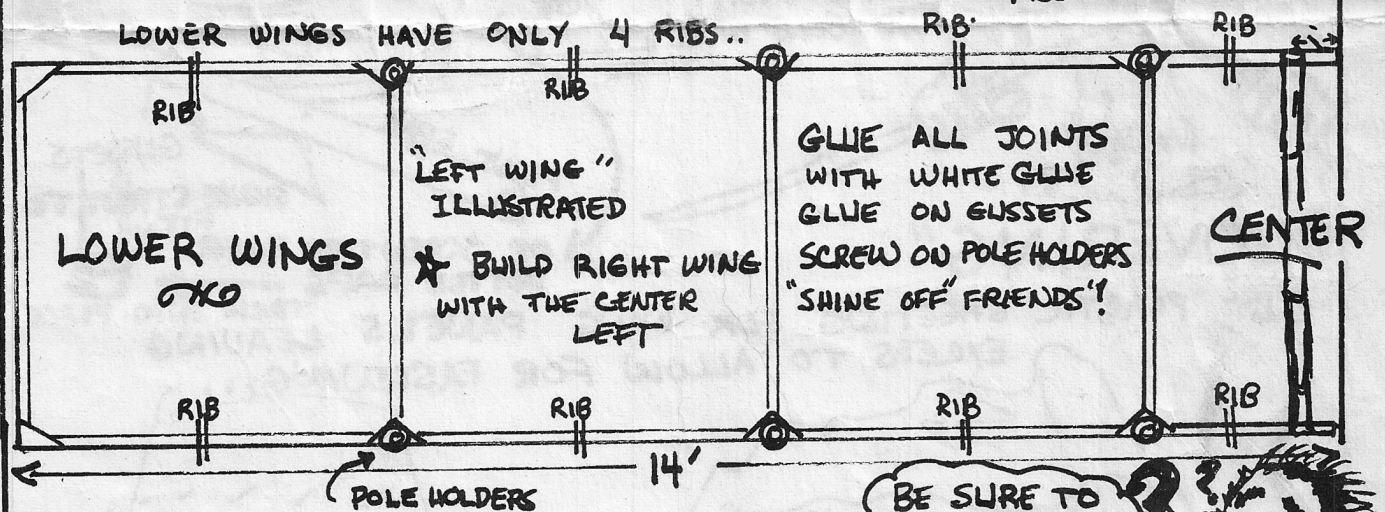 LOWER WINGS HAVE ONLY 4 RIBS..
RIB
RIB
RIB
RIB
LOWER WINGS
"LEFT WING"
ILLUSTRATED
☆ BUILD RIGHT WING
WITH THE CENTER
LEFT
GLUE ALL JOINTS
WITH WHITE GLUE
GLUE ON GUSSETS
SCREW ON POLE HOLDERS
"SHINE OFF" FRIENDS"!
CENTER
RIB
RIB
RIB
RIB
14'
POLE HOLDERS
BE SURE TO